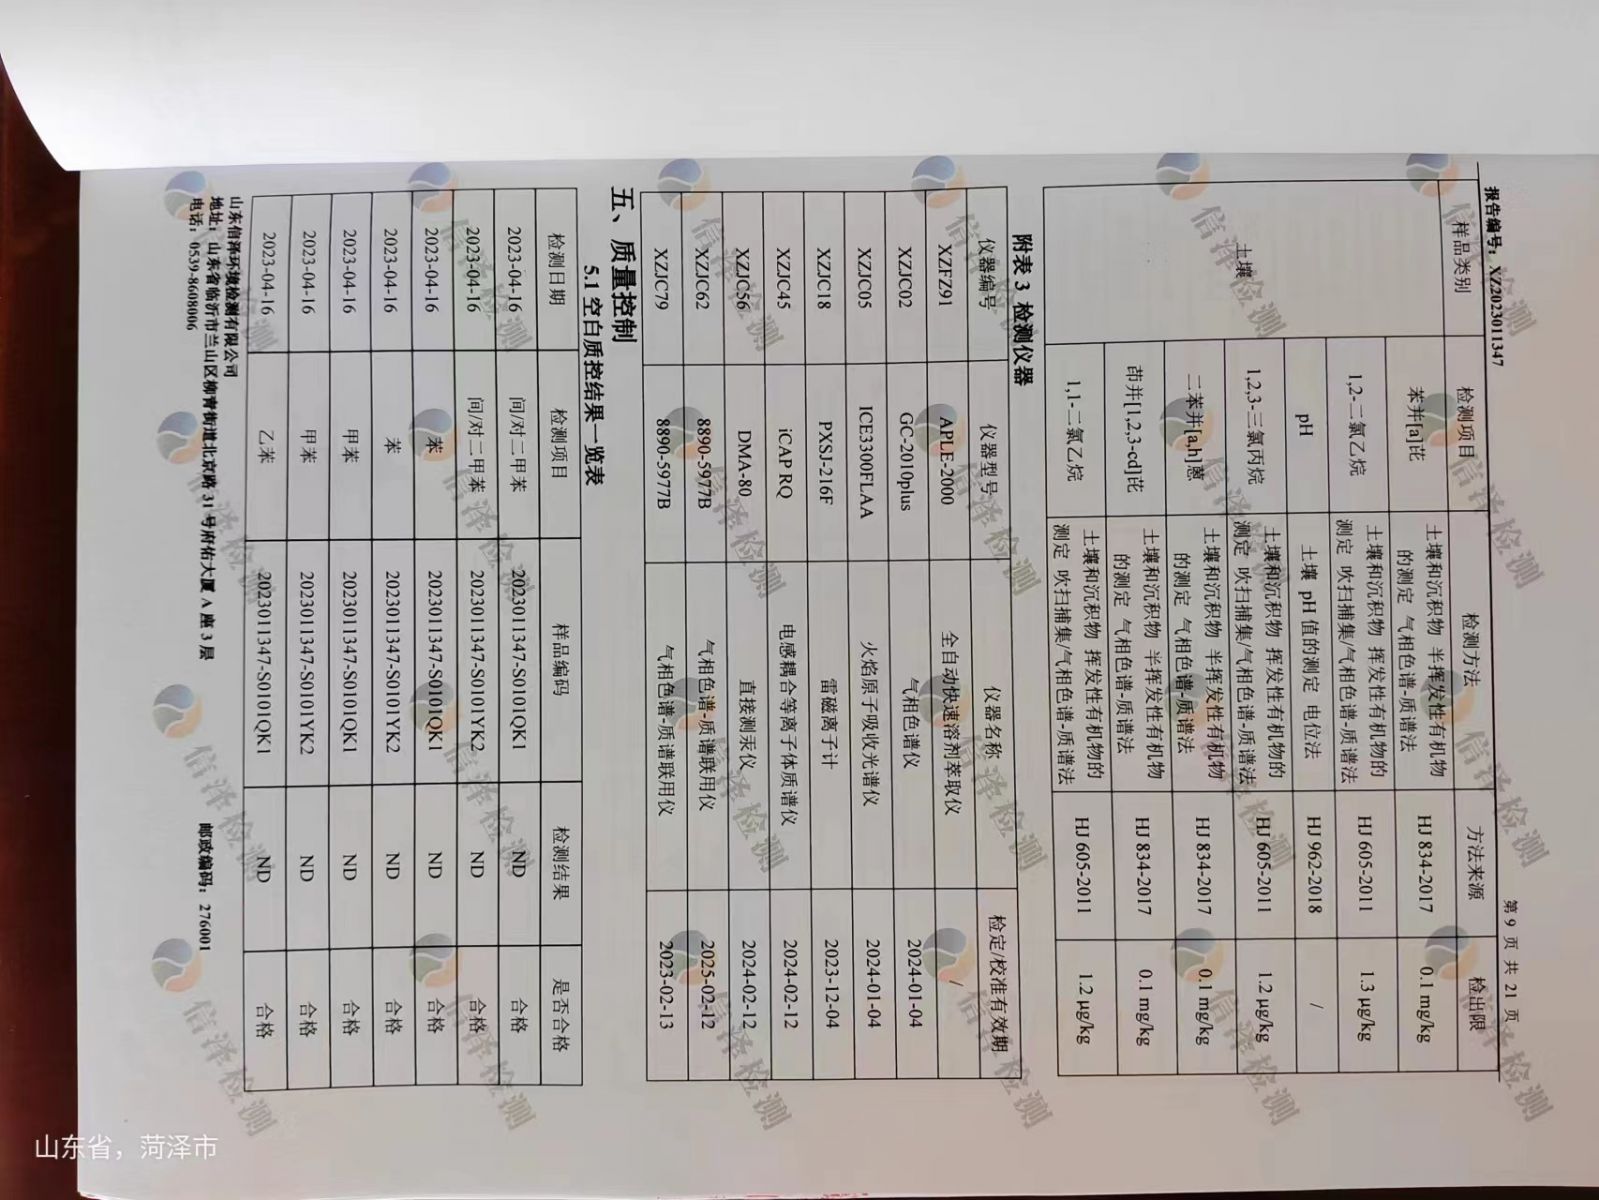 报告编号：XZ2023011347
第 9 页 共 21 页
样品类别 检测项目 检测方法 方法来源 检出限
土壤
苯并[a]芘 土壤和沉积物 半挥发性有机物的测定 气相色谱-质谱法 HJ 834-2017 0.1 mg/kg
1,2-二氯乙烷 土壤和沉积物 挥发性有机物的测定 吹扫捕集/气相色谱-质谱法 HJ 605-2011 1.3 μg/kg
pH 土壤 pH 值的测定 电位法 HJ 962-2018 /
1,2,3-三氯丙烷 土壤和沉积物 挥发性有机物的测定 吹扫捕集/气相色谱-质谱法 HJ 605-2011 1.2 μg/kg
二苯并[a,h]蒽 土壤和沉积物 半挥发性有机物的测定 气相色谱-质谱法 HJ 834-2017 0.1 mg/kg
茚并[1,2,3-cd]芘 土壤和沉积物 半挥发性有机物的测定 气相色谱-质谱法 HJ 834-2017 0.1 mg/kg
1,1-二氯乙烷 土壤和沉积物 挥发性有机物的测定 吹扫捕集/气相色谱-质谱法 HJ 605-2011 1.2 μg/kg
附表 3 检测仪器
仪器编号 仪器型号 仪器名称 检定/校准有效期
XZFZ91 APLE-2000 全自动快速溶剂萃取仪 /
XZJC02 GC-2010plus 气相色谱仪 2024-01-04
XZJC05 ICE3300FLAA 火焰原子吸收光谱仪 2024-01-04
XZJC18 PXSJ-216F 雷磁离子计 2023-12-04
XZJC45 iCAP RQ 电感耦合等离子体质谱仪 2024-02-12
XZJC56 DMA-80 直接测汞仪 2024-02-12
XZJC62 8890-5977B 气相色谱-质谱联用仪 2025-02-12
XZJC79 8890-5977B 气相色谱-质谱联用仪 2023-02-13
五、质量控制
5.1 空白质控结果一览表
检测日期 检测项目 样品编码 检测结果 是否合格
2023-04-16 间/对二甲苯 2023011347-S0101QK1 ND 合格
2023-04-16 间/对二甲苯 2023011347-S0101YK2 ND 合格
2023-04-16 苯 2023011347-S0101QK1 ND 合格
2023-04-16 苯 2023011347-S0101YK2 ND 合格
2023-04-16 甲苯 2023011347-S0101QK1 ND 合格
2023-04-16 甲苯 2023011347-S0101YK2 ND 合格
2023-04-16 乙苯 2023011347-S0101QK1 ND 合格
山东信泽环境检测有限公司
地址：山东省临沂市兰山区柳青街道北京路 31 号府佑大厦 A 座 3 层 邮政编码：276001
电话：0539-8608006
信泽检测
山东省，菏泽市